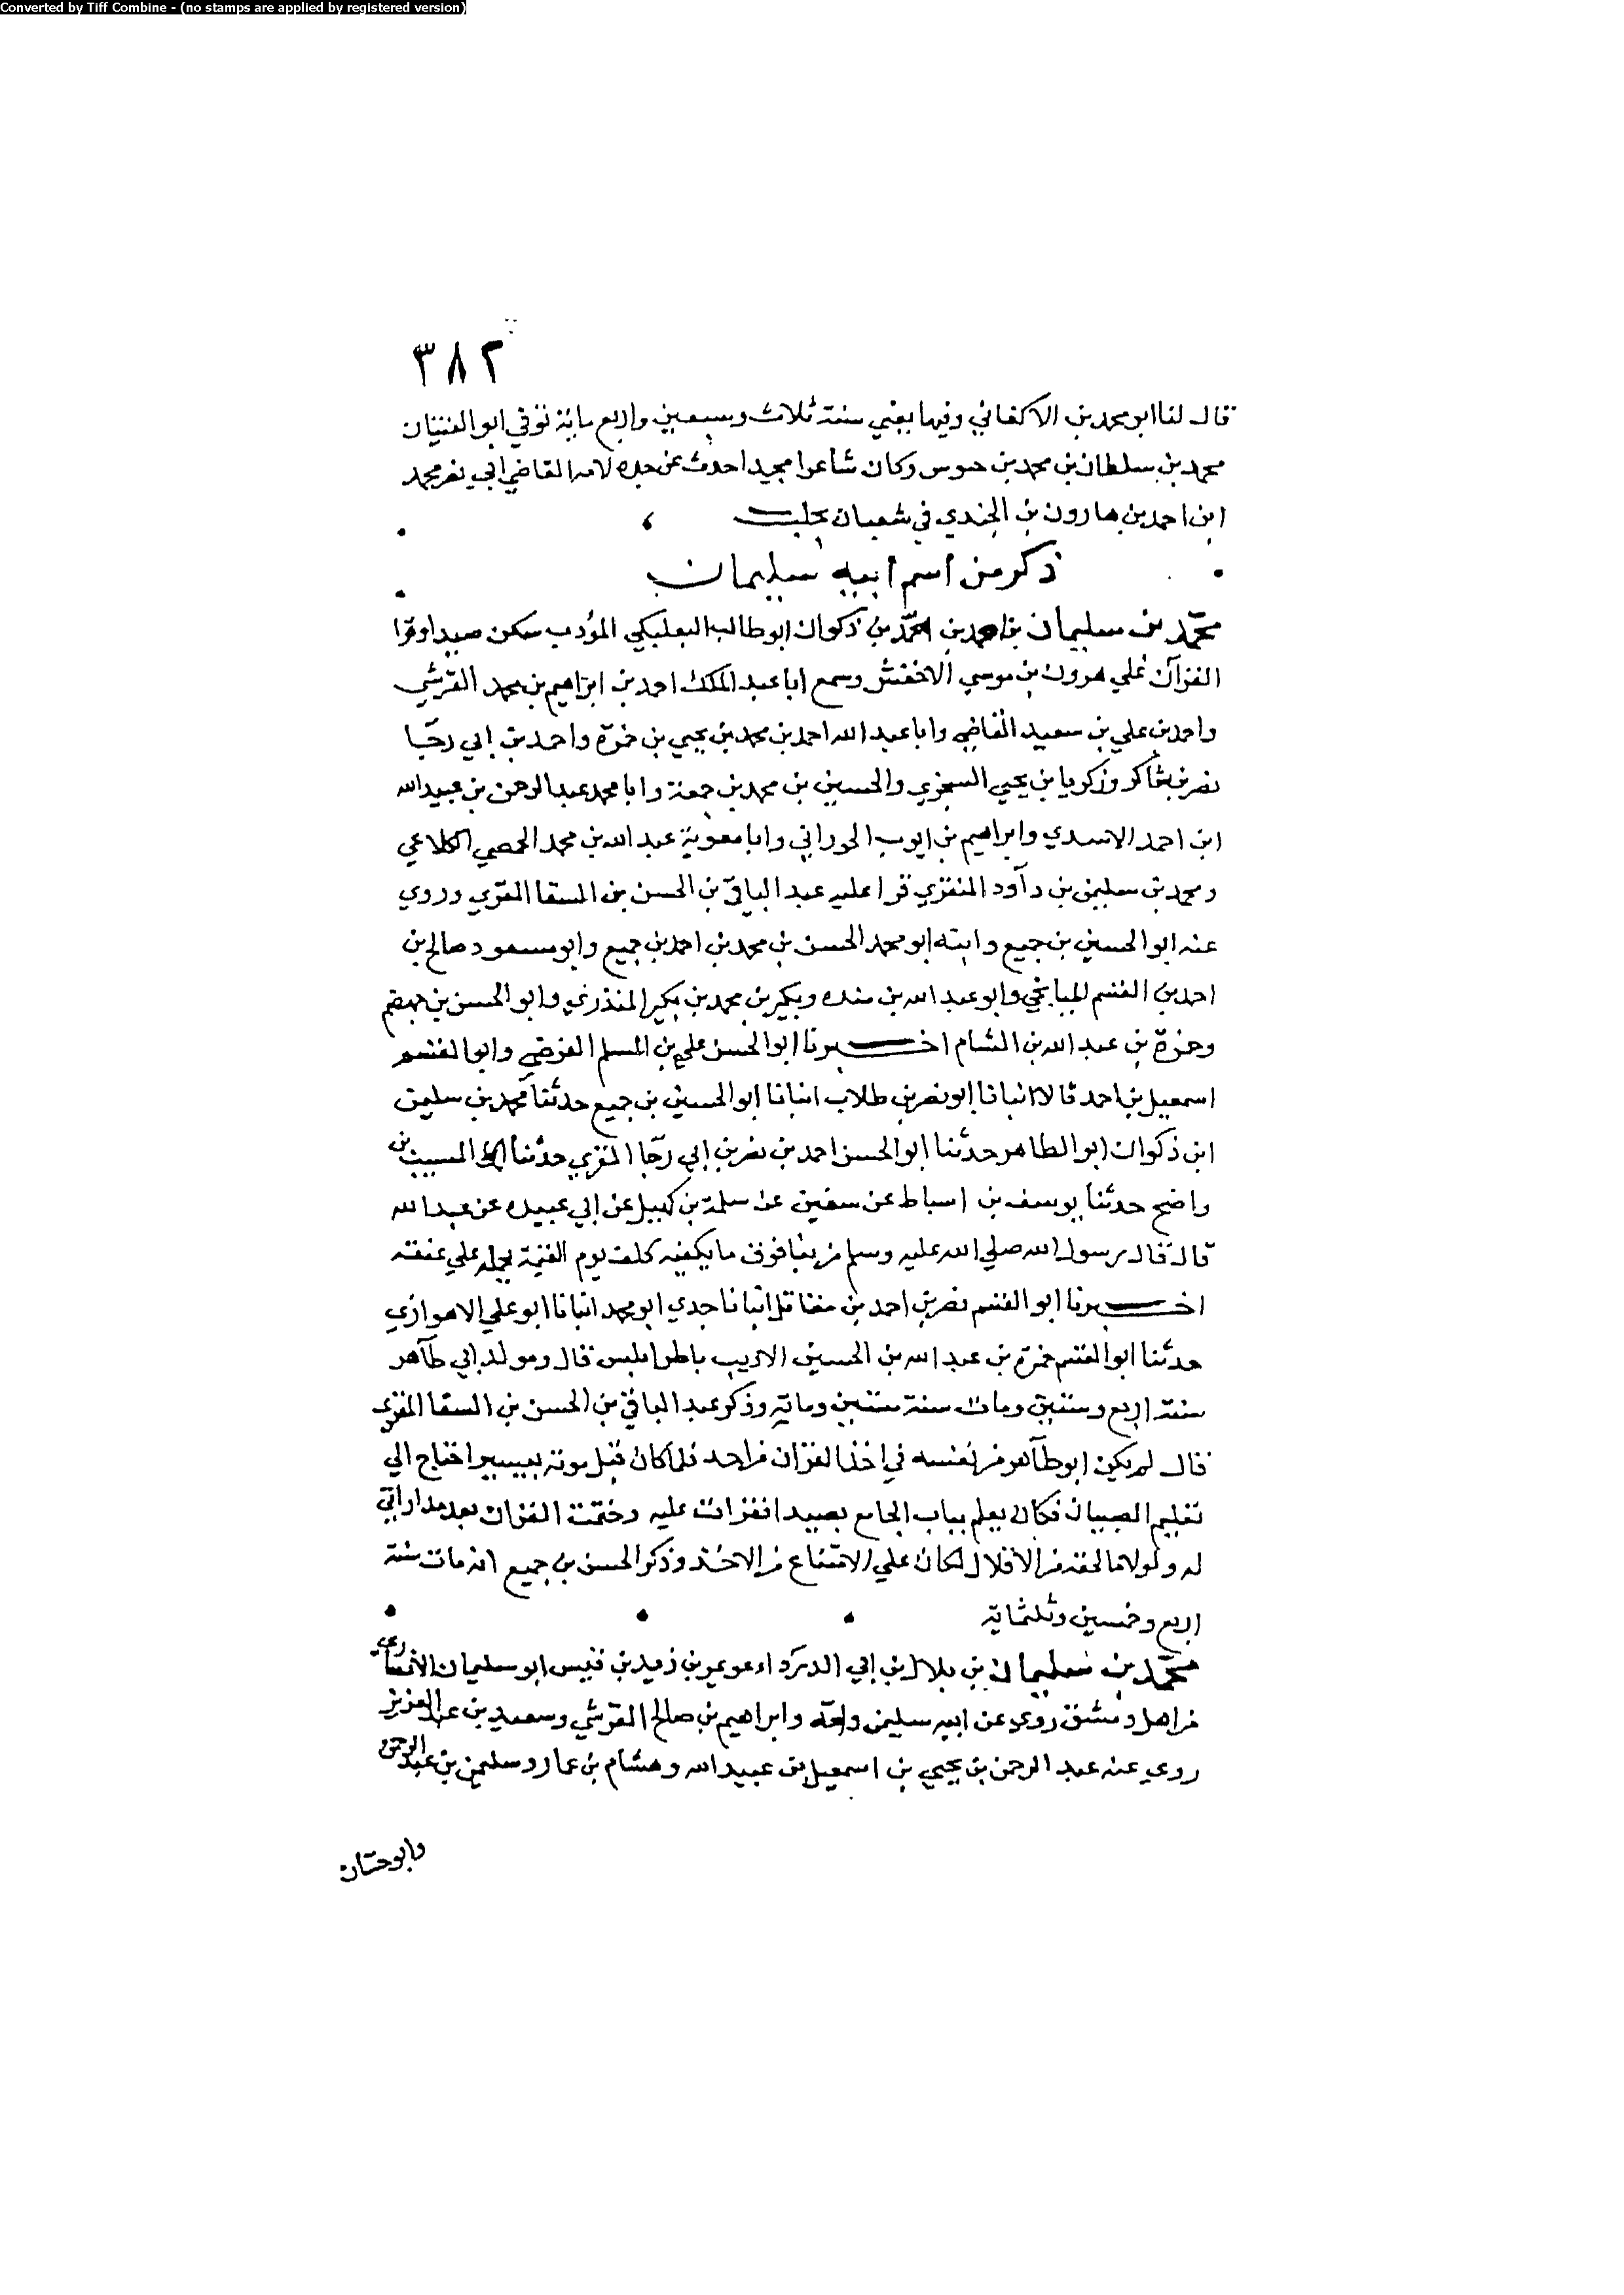 Converted by Tiff Combine - (no stamps are applied by registered version)
٣٨٢
قال لنا ابو محمد بن الاكفاني وفيها يعني سنة ثلاث وسبعين واربع ماية توفي ابو الفتيان
محمد بن سلطان بن محمد بن حيوس وكان شاعرا مجيدا حدث عن جده لامه القاضي ابي نصر محمد
ابن احمد بن هارون بن الجندي في شعبان بحلب
ذكر من اسم ابيه سليمان
محمد بن سليمان بن احمد بن محمد بن ذكوان ابو طالب البعلبكي المؤدب سكن صيدا وقرا
القرآن علي هرون بن موسي الاخفش وسمع ابا عبد الملك احمد بن ابراهيم بن محمد القرشي
واحمد بن علي بن سعيد القاضي وابا عبد الله احمد بن محمد بن يحيي بن حمزة واحمد بن ابي رجا
نصر بن شاكر وزكريا بن يحيي السجزي والحسين بن محمد بن جمعة وابا محمد عبد الرحمن بن عبيد الله
ابن احمد الاسدي وابراهيم بن ايوب الحوراني وابا معوية عبد الله بن محمد الحمصي الكلاعي
ومحمد بن سليمن بن داود المنقري قرا عليه عبد الباقي بن الحسن بن السقا المقري وروي
عنه ابو الحسين بن جميع وابنه ابو محمد الحسن بن محمد بن احمد بن جميع وابو مسعود صالح بن
احمد بن القسم الميانجي وابو عبد الله بن منده وبكير بن محمد بن بكير المنذري وابو الحسن بن جهضم
وحمزة بن عبد الله بن الشام اخبرنا ابو الحسن علي بن المسلم الفرضي وابو القسم
اسمعيل بن احمد قالا انبانا ابو نصر بن طلاب انبانا ابو الحسين بن جميع حدثنا محمد بن سليمن
ابن ذكوان ابو الطاهر حدثنا ابو الحسن احمد بن نصر بن ابي رجا المقري حدثنا المسيب بن
واضح حدثنا يوسف بن اسباط عن سفين عن سلمة بن كهيل عن ابي عبيده عن عبد الله
قال قال رسول الله صلي الله عليه وسلم من بنا فوق ما يكفيه كلف يوم القيمة يحمله علي عنقه
اخبرنا ابو القسم نصر بن احمد بن مقاتل انبانا جدي ابو محمد انبانا ابو علي الاهوازي
حدثنا ابو القسم حمزة بن عبد الله بن الحسين الاديب باطرابلس قال ومولد ابي طاهر
سنة اربع وستين ومات سنة ستين وماية وذكر عبد الباقي بن الحسن بن السقا المقري
قال لم يكن ابو طاهر من نفسه في اخذ القران من احد فلما كان قبل موته بيسير احتاج الي
تعليم الصبيان فكان يعلم بباب الجامع بصيدا فقرات عليه وختمت القران بعد مداراتي
له ولولا ما لحقه من الاقلال لكان علي الامتناع من الاخذ وذكر الحسن بن جميع انه مات سنة
اربع وخمسين وثلثماية
محمد بن سليمان بن بلال بن ابي الدرداء عويمر بن زيد بن قيس ابو سليمان الانصاري
من اهل دمشق روي عن ابيه سليمن وامه وابراهيم بن صالح القرشي وسعيد بن عبد العزيز
روي عنه عبد الرحمن بن يحيي بن اسمعيل بن عبيد الله وهشام بن عمار وسليمن بن عبد الرحمن
وابو حسان